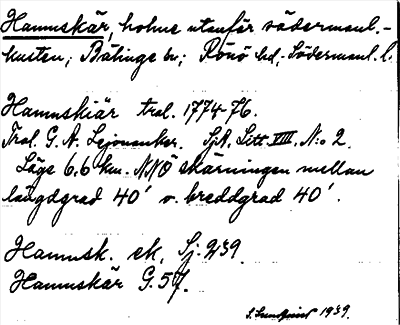 Hamnskär, holme utanför södermanl.-
kusten; Bälinge sn; Rönö hd, Södermanl. l.
Hamnskiär tral. 1774-76.
Tral. G. A. Lejonanker. SjA, Litt. VIII, N:o 2.
Läge 6.6 km. NNÖ skärningen mellan
längdgrad 40' o. breddgrad 40'.
Hamnsk. ek, Sj. 239.
Hamnskär G. 57.
S. Lundqvist 1939.